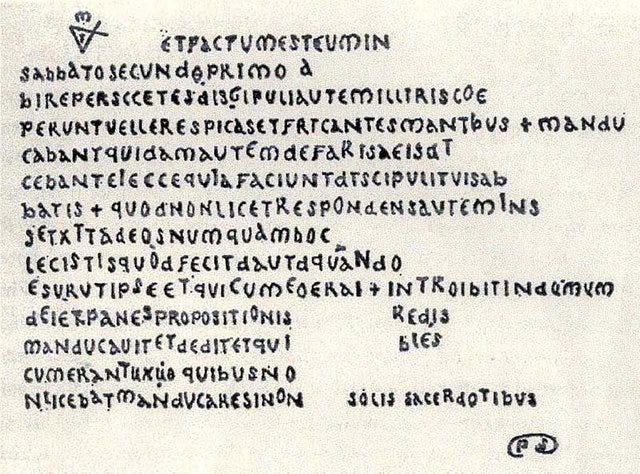 ETFACTUMESTEUMIN
SABBATOSECUNDOPRIMO A
BIREPERSCCETESDISGIPULIAUTEMILLIRISCOE
PERUNTVELLERESPICASETFRICANTESMANTBUS + MANDU
CABANTQUIDAMAUTEMDEFARISAEISDT
CEBANTEIECCEQUIAFACIUNTDTSCIPULITVISAB
BATIS + QUODNONLICETRESPONDENSAUTEMINS
SETXTTADEOSNUMQUAMBOC
LECISTISQUODFECITDAUTDQUANDO
ESURUTIPSEETQUICUMEOERAI + INTROIBITINDOMUM
DEIETPANESPROPOSITIONIS REDIS
MANDUCAUITETDEDITETQUI BLES
CUMERANTUXUO QUIBUSNO
NLICEBATMANDUCARESINON SOLIS SACERDOTIBUS
PS